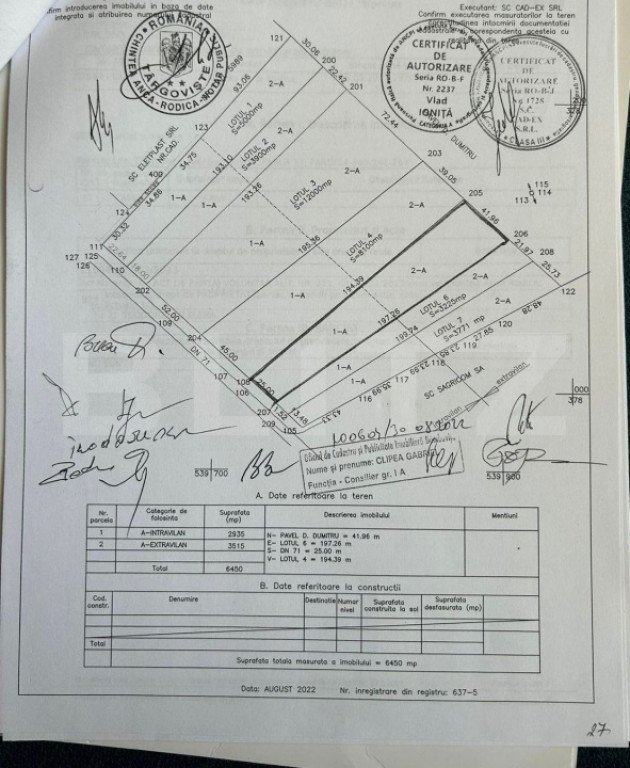 firm introducerea imobilului in baza de date
integrata si atribuirea
Executant: SC CAD-EX SRL
Confirm executarea masuratorilor la teren
intocmirii documentatiei
cadastrale si corespondenta acesteia cu
din teren
ROMÂNIA
CHINTEA ANCA-RODICA-NOTAR PUBLIC
TÂRGOVIȘTE
CERTIFICAT
DE
AUTORIZARE
Seria RO-B-F
Nr. 2237
Vlad
IONIȚĂ
CATEGORIA
CERTIFICAT
DE
AUTORIZARE
Seria RO-B-J
Nr. 1728
S.C.
CAD-EX
S.R.L.
CLASA III
121
30.06
200
22.42
201
72.44
DUMITRU
203
39.05
205
41.96
206
21.97
208
25.73
122
115
114
113
93.06
2-A
2-A
2-A
2-A
2-A
2-A
LOTUL 1
S=5000mp
LOTUL 2
S=3900mp
LOTUL 3
S=12000mp
LOTUL 4
S=8100mp
LOTUL 6
S=3225mp
LOTUL 7
S=3771 mp
SC ELETPLAST SRL
NR.CAD.
123
34.75
193.10
193.26
195.36
194.39
197.26
199.94
400
34.86
124
30.32
1-A
1-A
1-A
1-A
1-A
1-A
111
127 125
126
22.64
110
18.00
202
109
52.00
204
DN 71
45.00
107
108
106
25.00
207
209
1.52
105
13.48
43.33
116
35.99
117
23.99
118
23.95
119
27.85
120
48.28
SC SAGRICOM SA
intravilan
extravilan
000
378
539 700
539 900
100609/30.08.2022
Oficiul de Cadastru si Publicitate Imobiliara
Nume și prenume: CLIPEA GABRIEL
Funcția - Consilier gr. I A
A. Date referitoare la teren
Nr. parcela | Categorie de folosinta | Suprafata (mp) | Descrierea imobilului | Mentiuni
1 | A-INTRAVILAN | 2935 | N- PAVEL D. DUMITRU = 41.96 m
2 | A-EXTRAVILAN | 3515 | E- LOTUL 6 = 197.26 m
S- DN 71 = 25.00 m
V- LOTUL 4 = 194.39 m
Total | 6450
B. Date referitoare la constructii
Cod. constr. | Denumire | Destinatie | Numar nivel | Suprafata construita la sol | Suprafata desfasurata (mp)
Total
Suprafata totala masurata a imobilului = 6450 mp
Data: AUGUST 2022 Nr. inregistrare din registru: 637-5
27